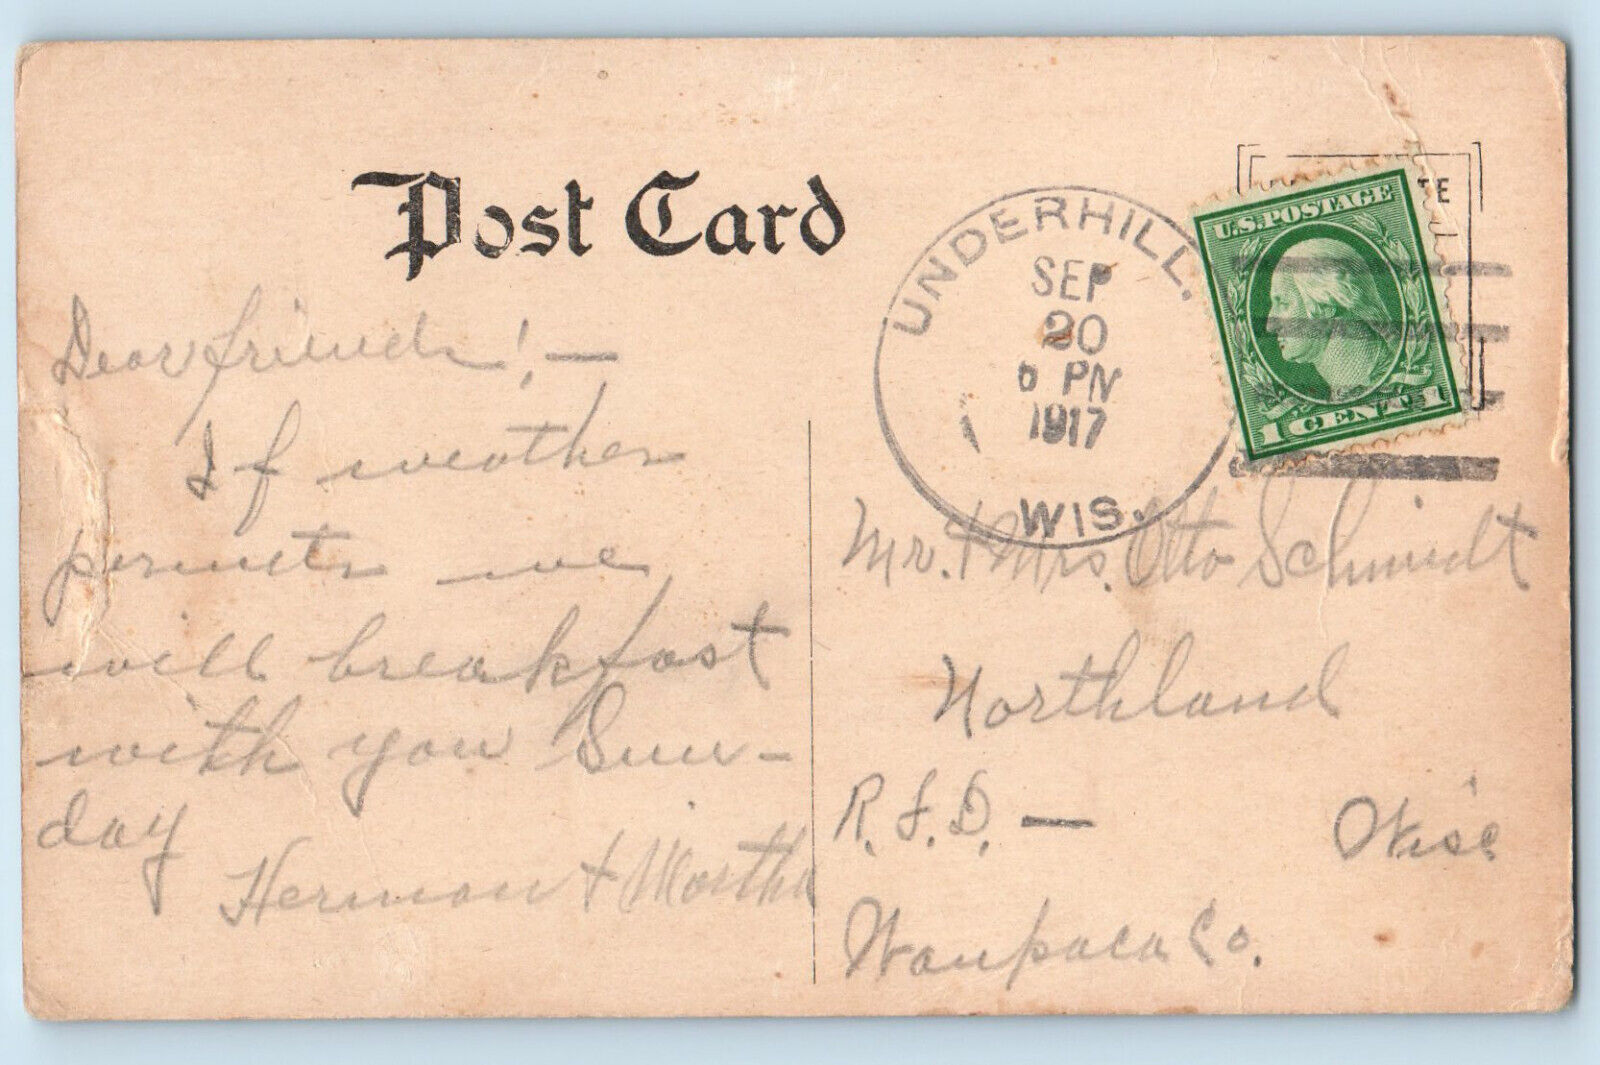 Post Card
UNDERHILL.
SEP
20
PM
1917
WIS.
U.S. POSTAGE
1 CENT 1
Dear friends! —
If weather
permits we
will breakfast
with you Sun-
day
Herman + Martha
Mr. + Mrs. Otto Schmidt
Northland
R.F.D. — Wisc
Waupaca Co.